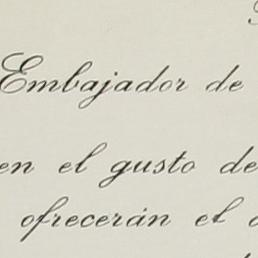 Embajador de
en el gusto de
ofrecerán el